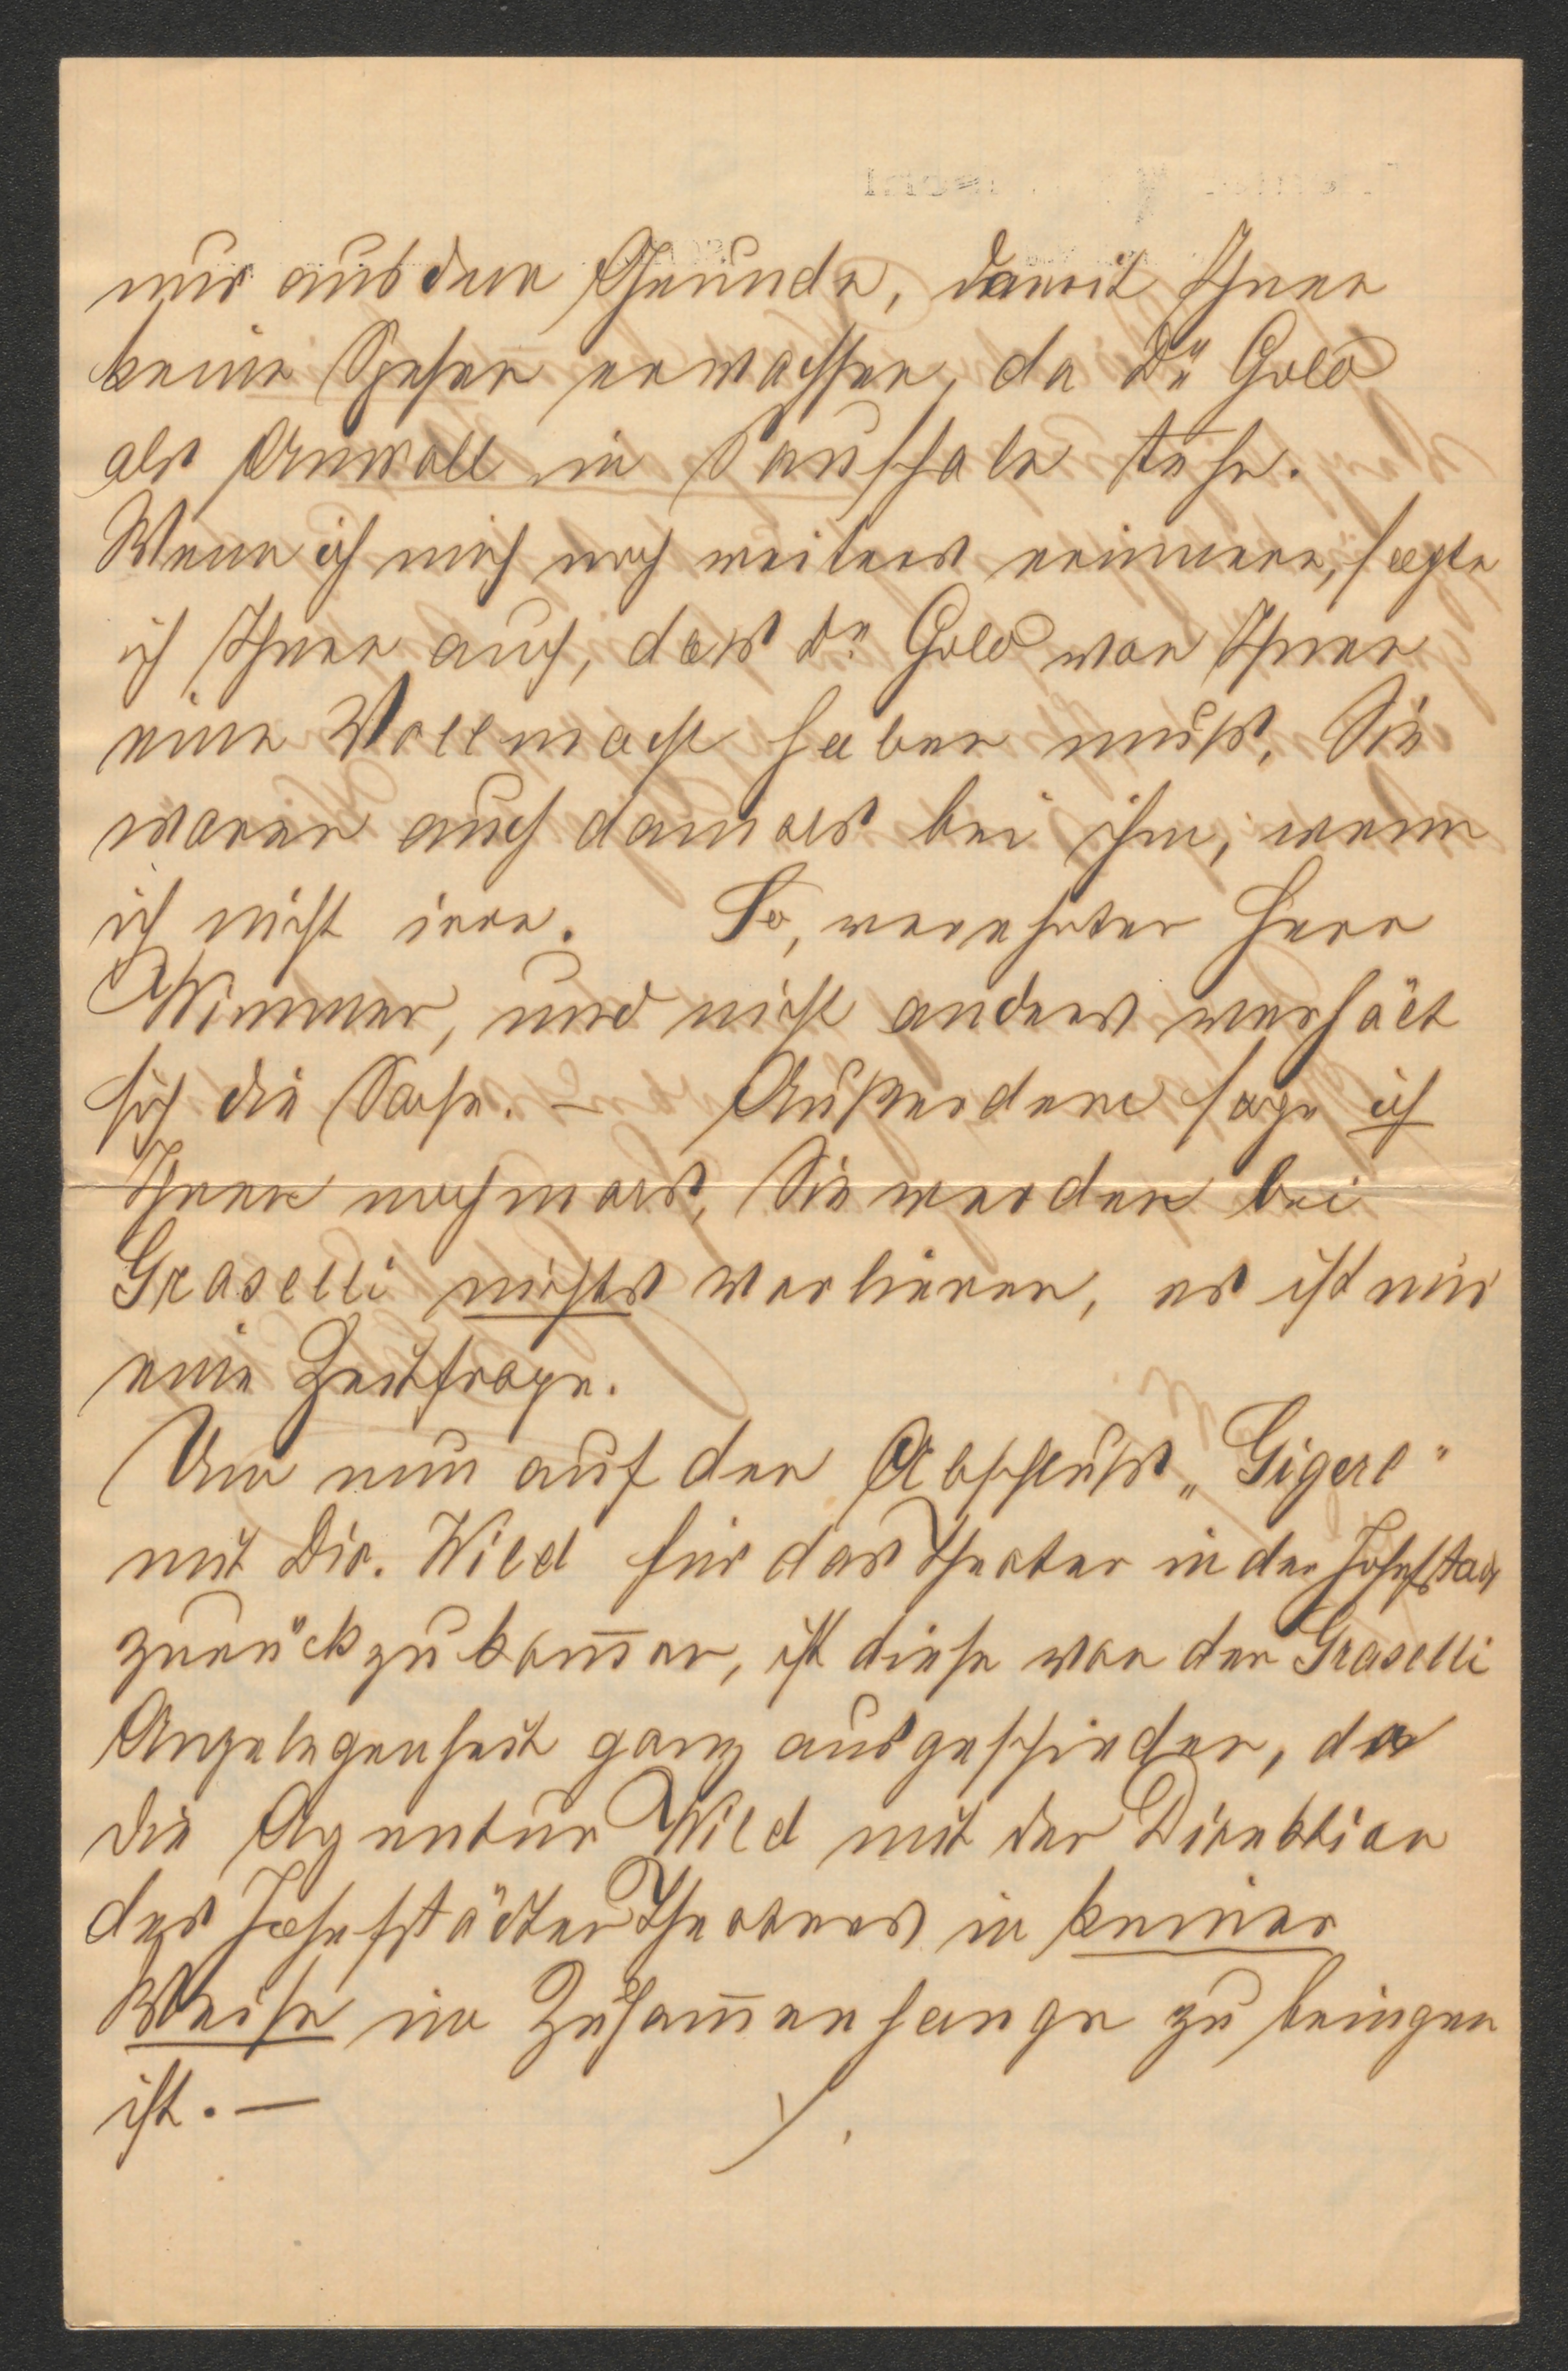 nur aus dem Grunde, damit Ihnen
keine Spesen erwachsen, da Dr Gold
als Anwalt in Pauschale stehe.
Wenn ich mich noch weiters erinnere, sagte
ich Ihnen auch, dass Dr Gold von Ihnen
eine Vollmacht haben muß. Sie
waren auch damals bei ihm, wenn
ich nicht irre. So, verehrter Herr
Wimmer, und nicht anders verhält
sich die Sache. – Außerdem sage ich
Ihnen nochmals, Sie werden bei
Graselli nichts verlieren, es ist nur
eine Zeitfrage.
Um nun auf den Abschluss „Gigerl"
mit Dir. Wild für das Theater in der Josefstadt
zurückzukom̅en, ist diese von der Graselli
Angelegenheit ganz ausgeschieden, da
die Agentur Wild mit der Direktion
des Josefstädter Theaters in keiner
Weise in Zusam̅enhange zu bringen
ist. –